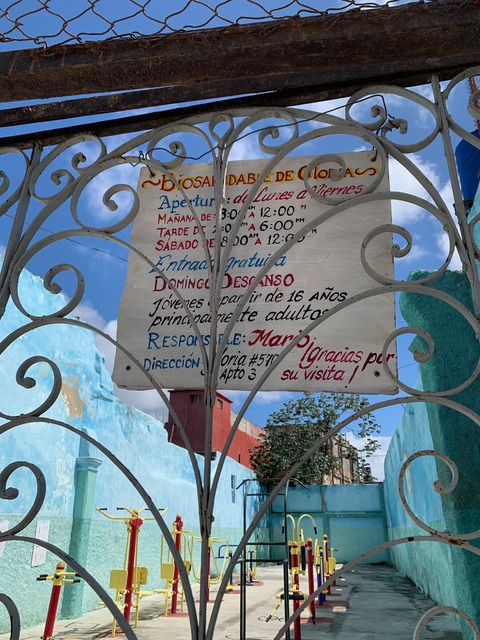 ~Biosaludable de Gloria~
Apertura: de Lunes a Viernes
Mañana de: 8:00 AM A 12:00 M
Tarde de 2:00 PM A 6:00 PM
Sábado de 8:00 AM A 12:00 M
Entrada gratuita
Domingo Descanso
Jóvenes a partir de 16 años
principalmente adultos
Responsable: Mario
Dirección: Gloria #570
Apto 3
¡gracias por
su visita!